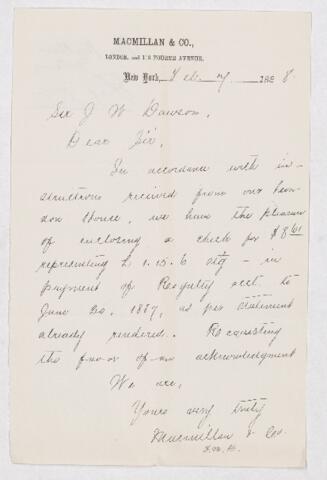 MACMILLAN & CO.,
LONDON, and 112 FOURTH AVENUE,
New York, Feb 7 1888.
Sir J W Dawson,
Dear Sir,
In accordance with in-
structions recived from our Lon-
don House, we have the pleasure
of enclosing a check for $8.61
representing £ 1.15.6 stg - in
payment of Royalty acct. to
June 30. 1887, as per statement
already rendered. Requesting
the favor of an acknowledgment
We are,
Yours very truly
Macmillan & Co.